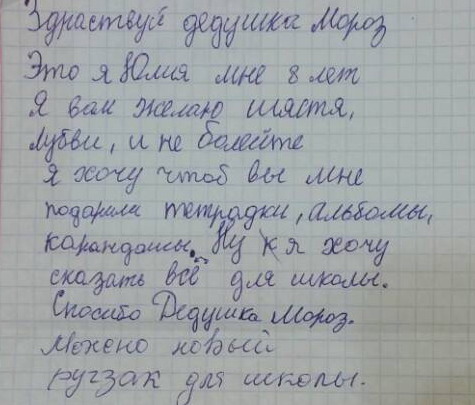 Здраствуй дедушка Мороз
Это я Юлия мне 8 лет
Я вам желаю щястя,
лубви, и не болейте
я хочу чтоб вы мне
подарили тетрадки, альбомы,
карандашы. Ну я хочу
сказать всё для школы.
Спосибо Дедушка Мороз.
Можено новый
ругзак для школы.